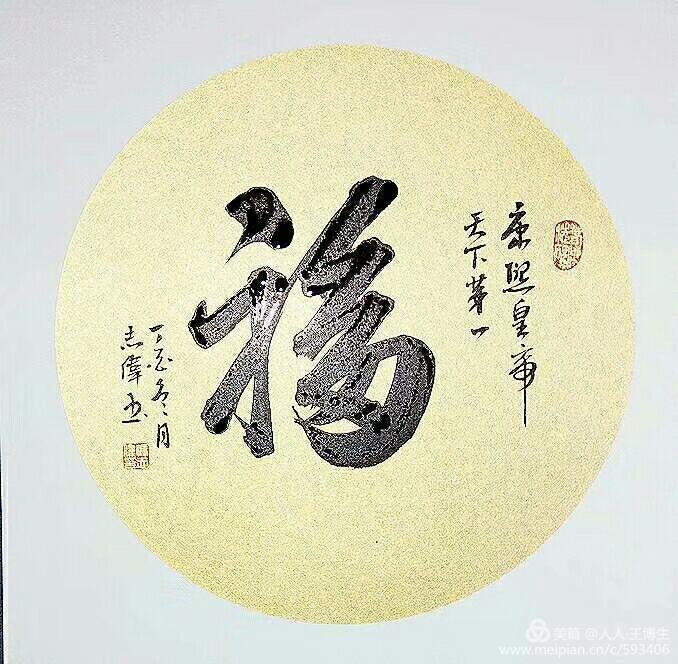 康熙皇帝
天下第一
福
丁酉冬月
志偉书
美篇 @人人·王博生
www.meipian.cn/c/593406